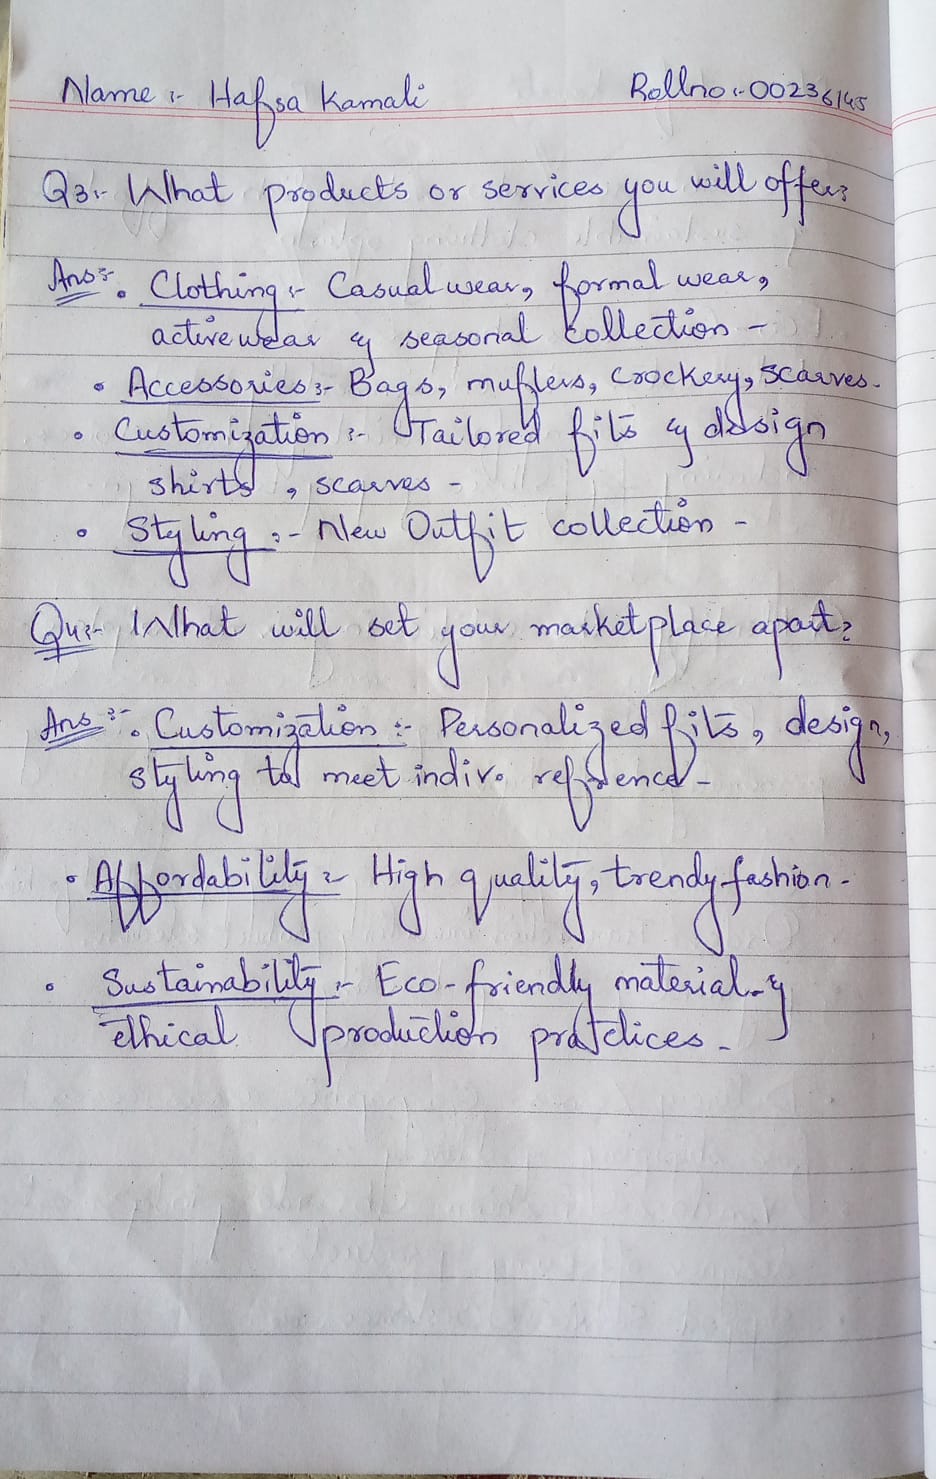 Name :- Hafsa Kamali Rollno :- 00236145
Q3:- What products or services you will offer?
Ans:- • Clothing :- Casual wear, formal wear,
activewear & seasonal collection -
• Accessories :- Bags, muflers, crockery, scarves.
• Customization :- Tailored fits & design
shirts, scarves -
• Styling :- New Outfit collection -
Q4:- What will set your marketplace apart?
Ans :- • Customization :- Personalized fits, design,
styling to meet indiv. refrence -
• Affordability :- High quality, trendy fashion -
• Sustainability :- Eco-friendly material &
ethical production practices -